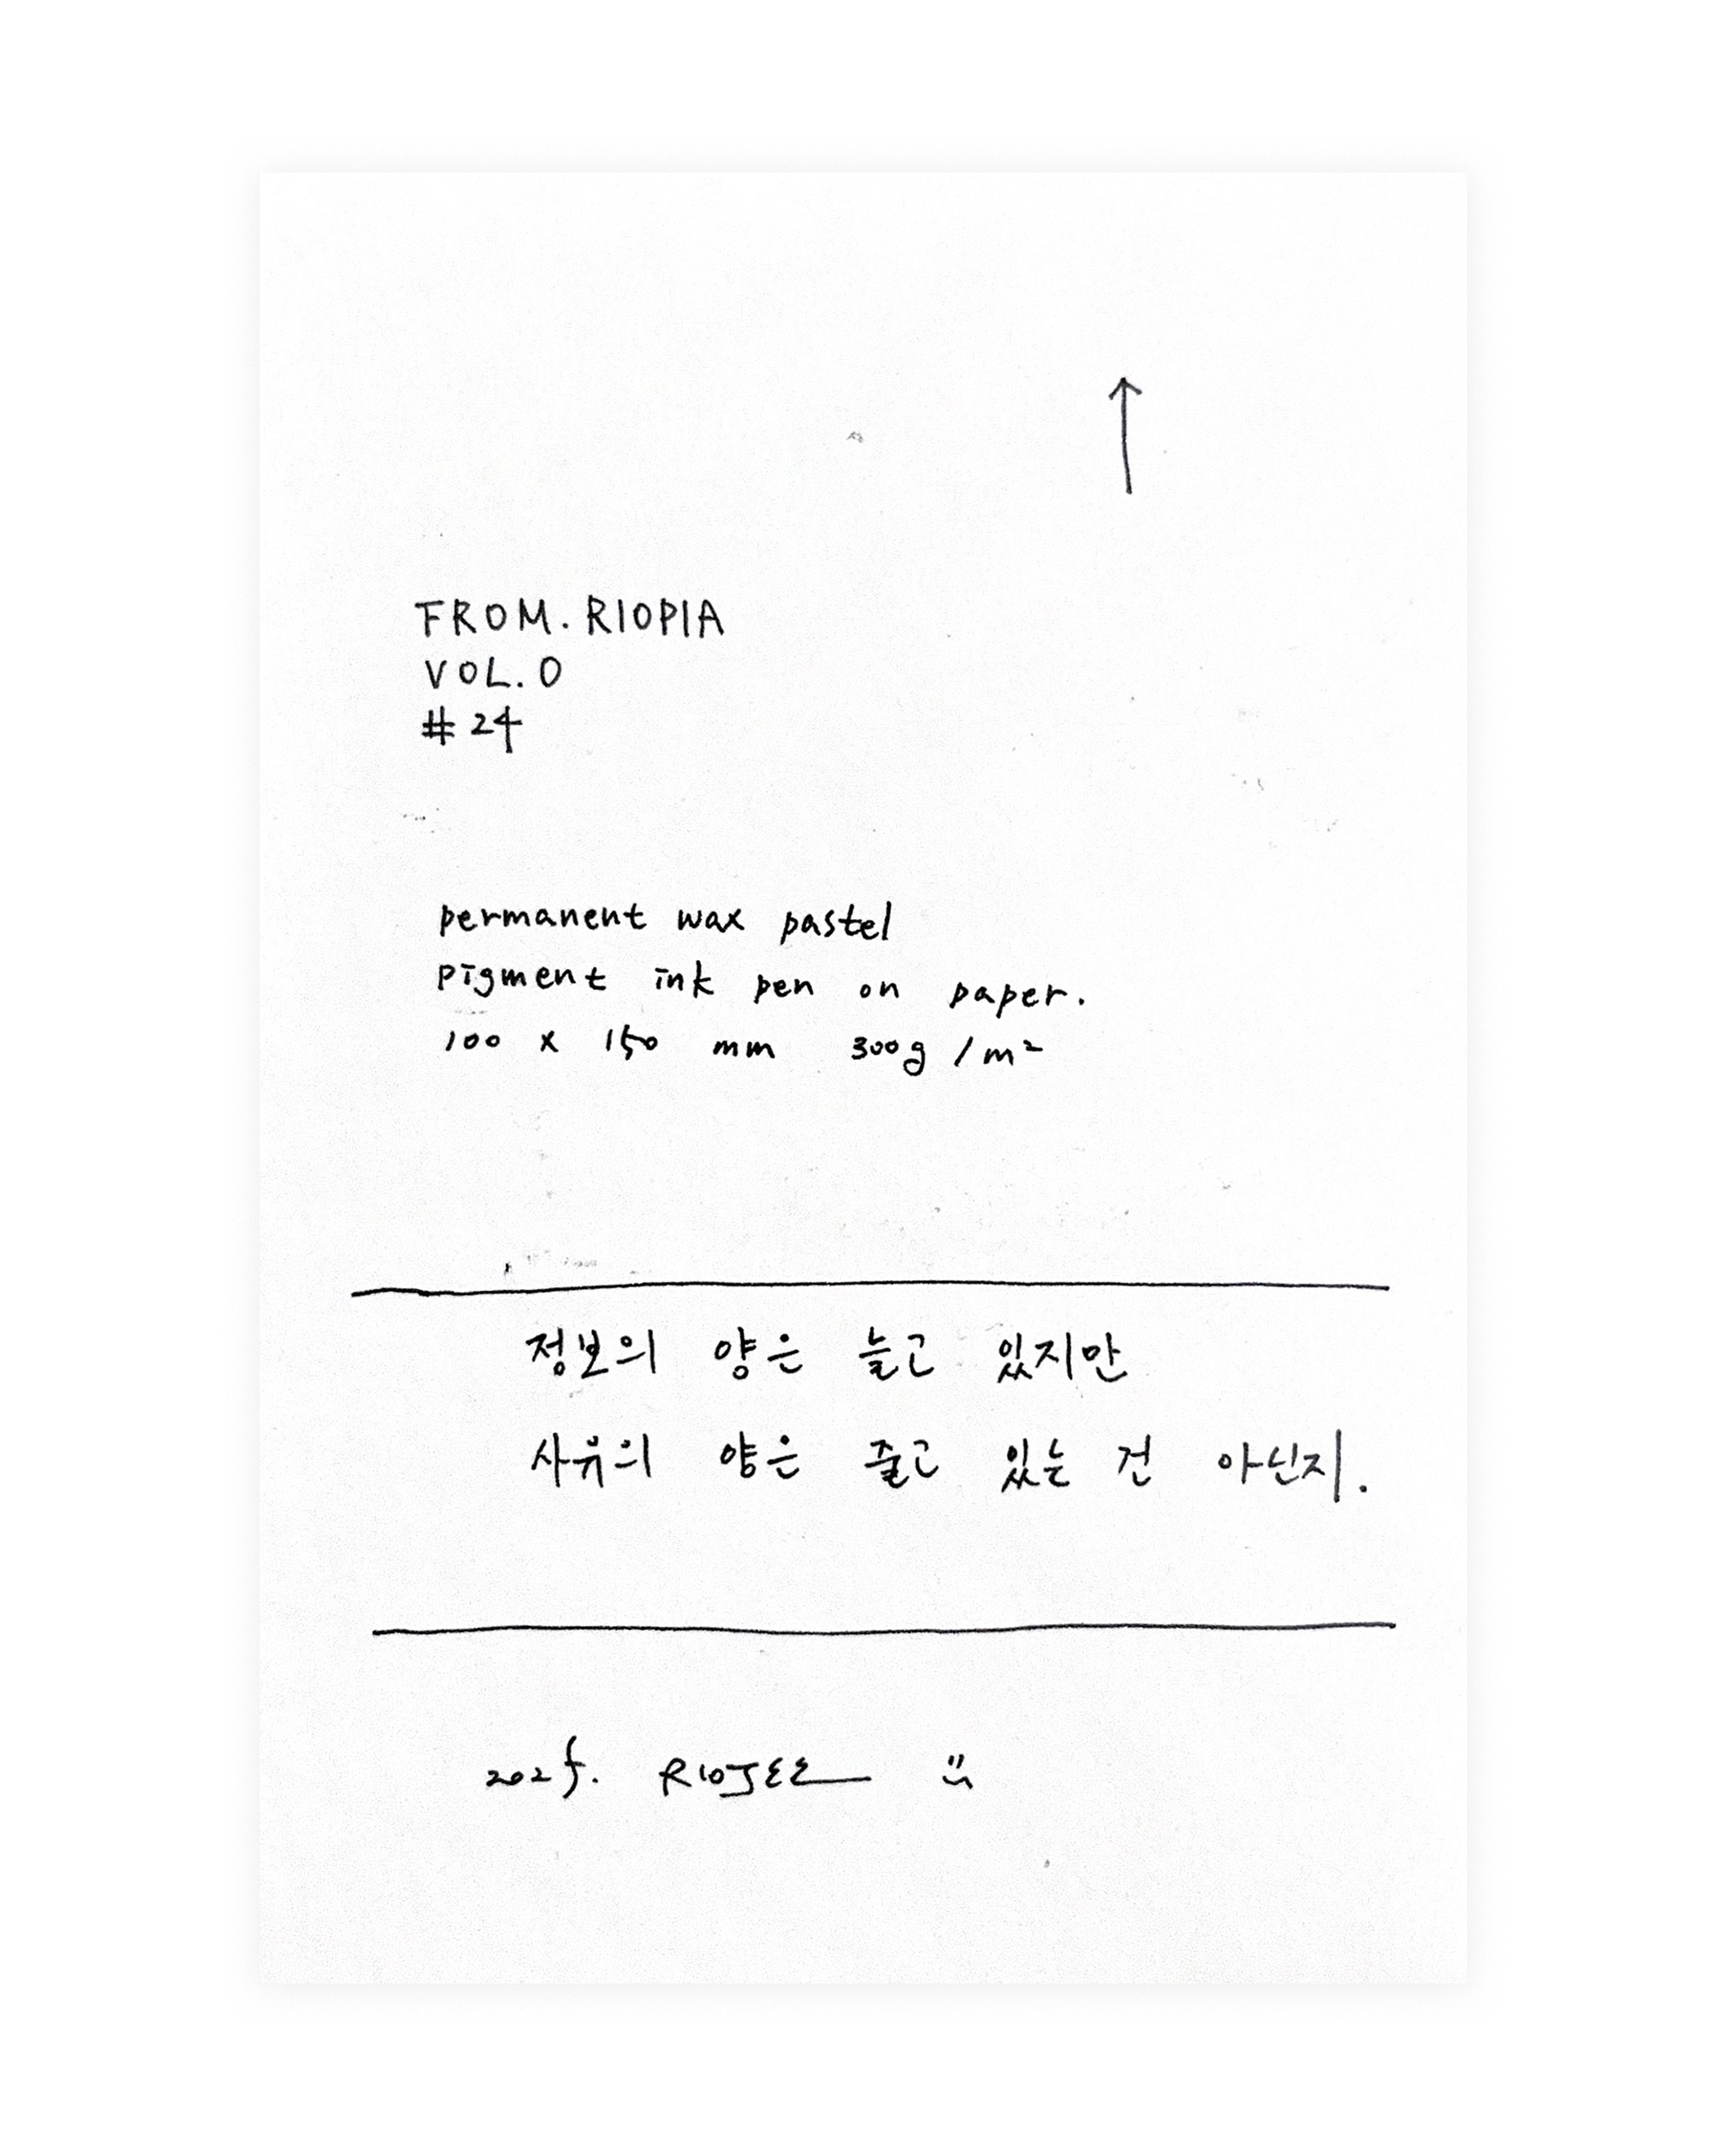 FROM. RIOPIA
VOL. 0
#24
permanent wax pastel
pigment ink pen on paper.
100 x 150 mm 300g /m²
정보의 양은 늘고 있지만
사유의 양은 줄고 있는 건 아닌지.
2025. RIOJEE